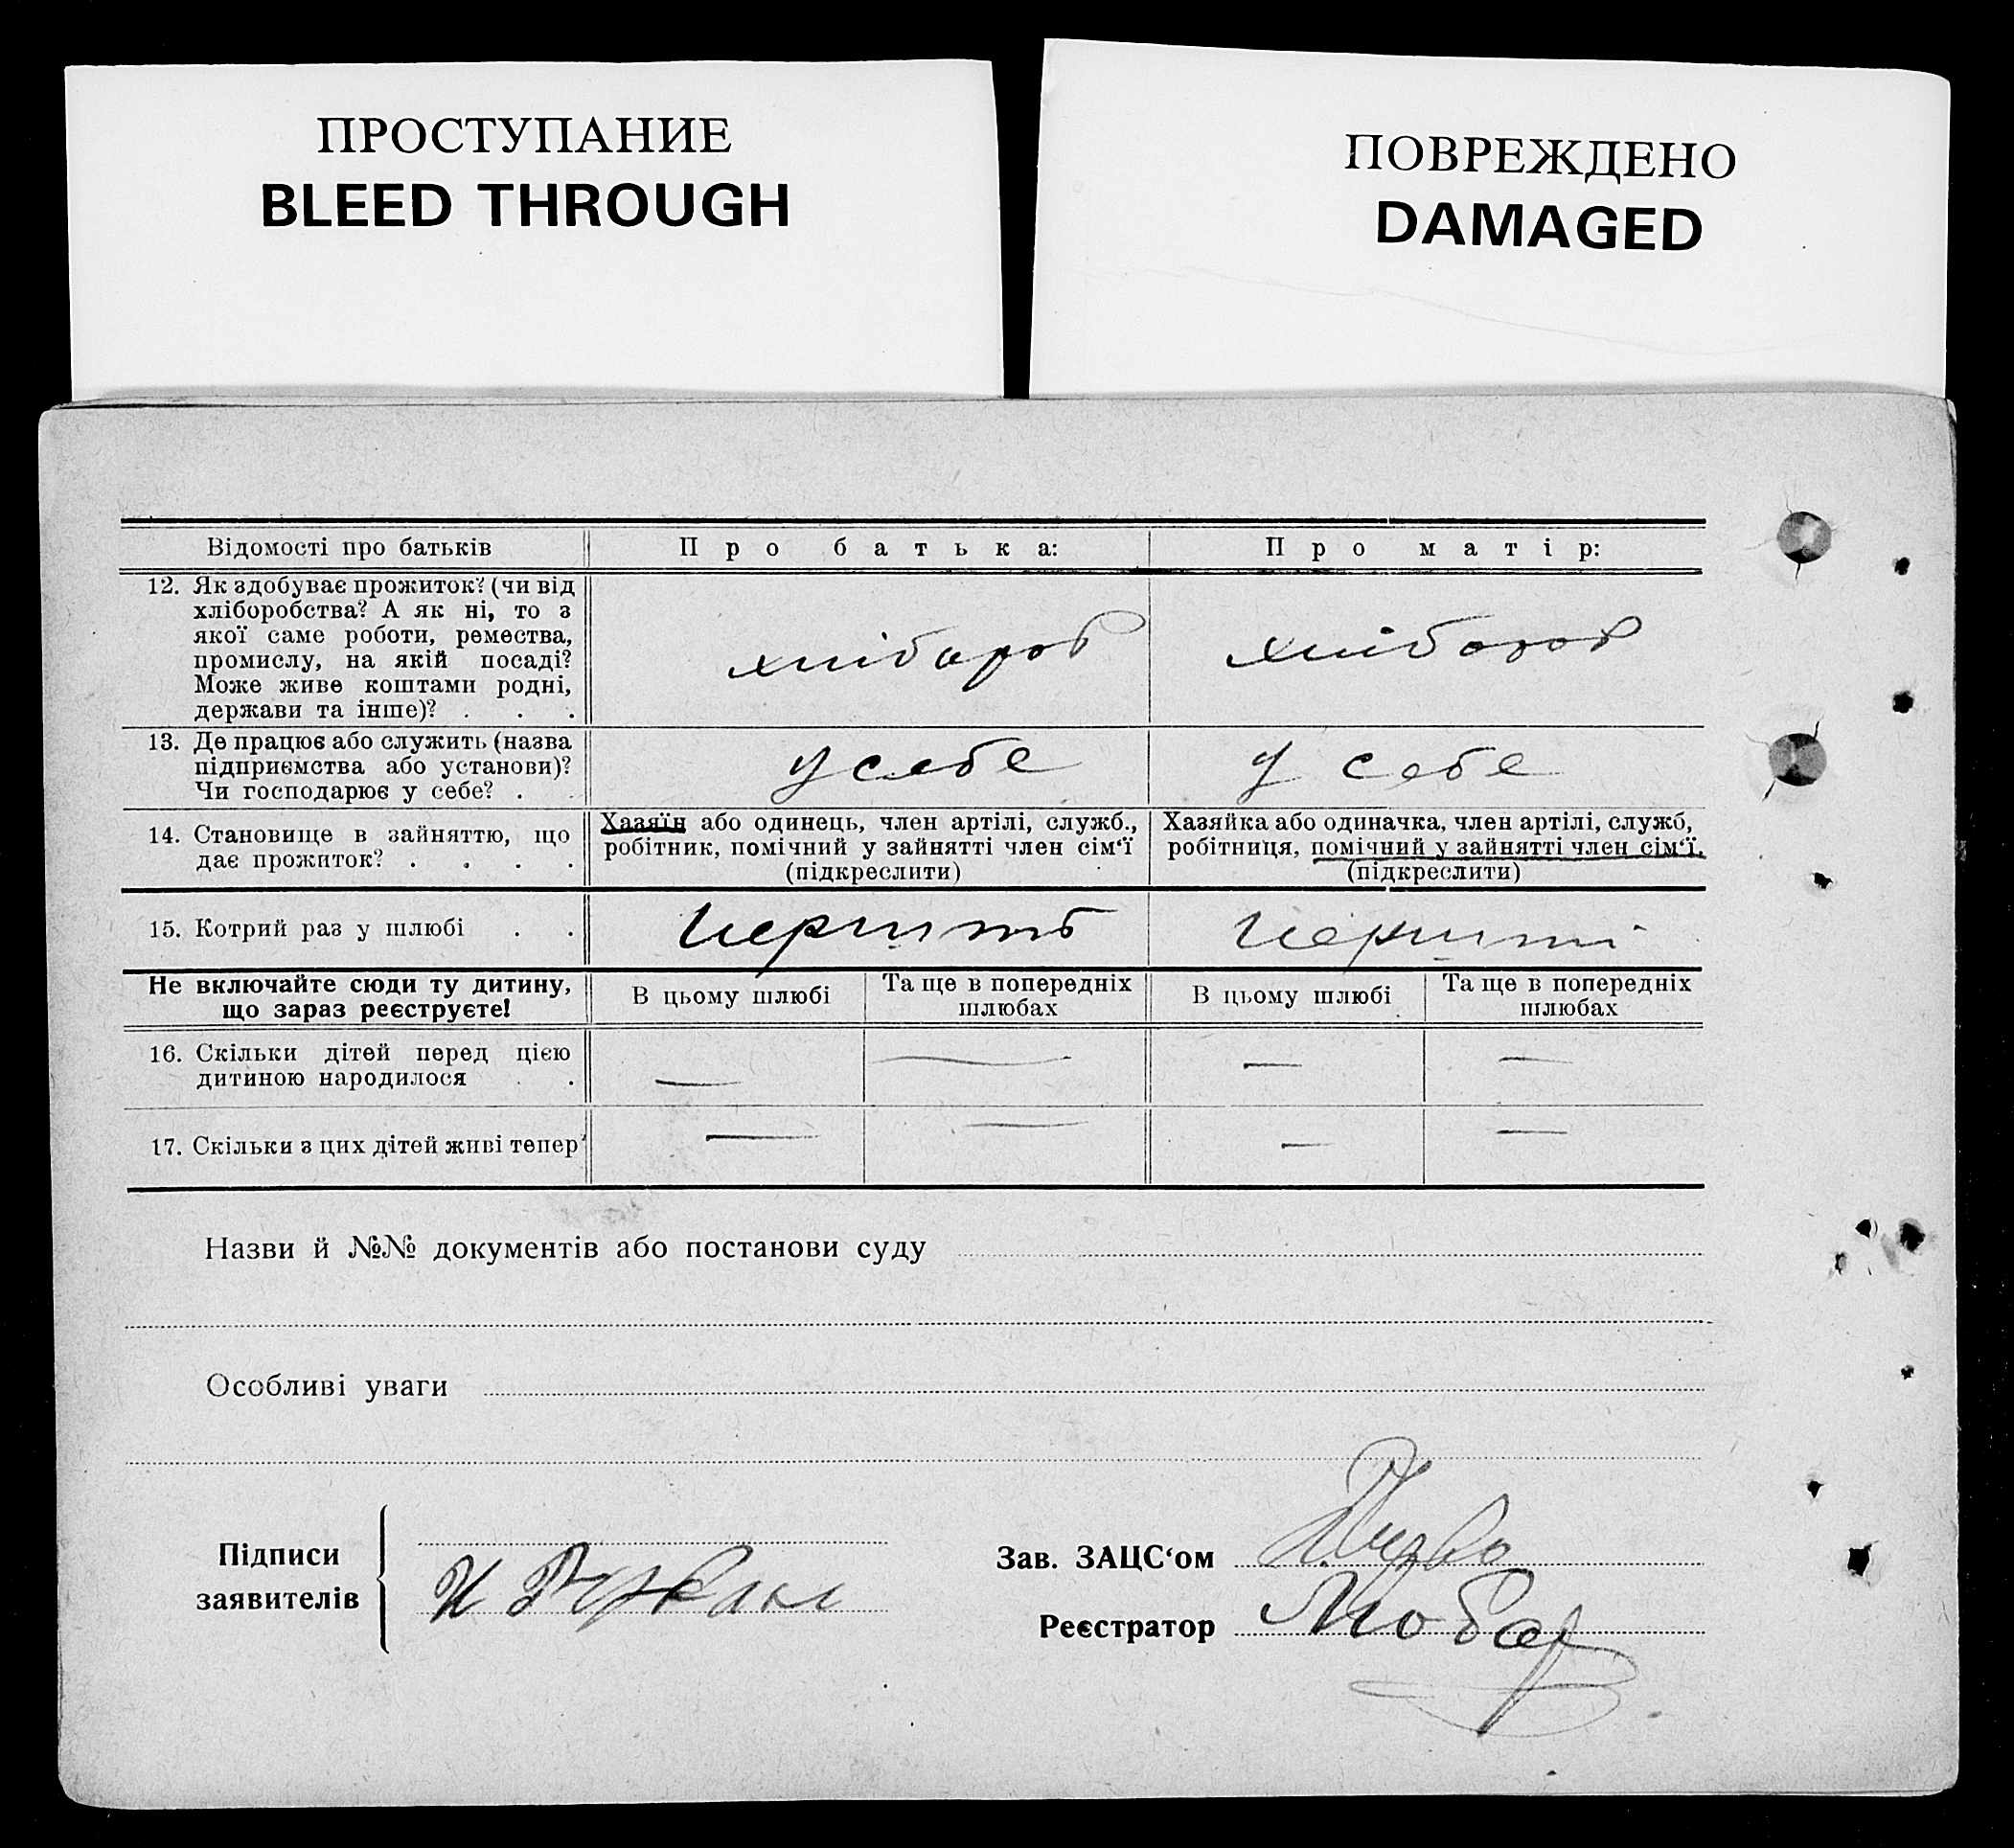 ПРОСТУПАНИЕ
BLEED THROUGH
ПОВРЕЖДЕНО
DAMAGED
Відомості про батьків
Про батька:
Про матір:
12. Як здобуває прожиток? (чи від
хліборобства? А як ні, то з
якої саме роботи, ремества,
промислу, на якій посаді?
Може живе коштами родні,
держави та інше)? . . .
хлібороб
хлібороб
13. Де працює або служить (назва
підприємства або установи)?
Чи господарює у себе? .
у себе
у себе
14. Становище в зайняттю, що
дає прожиток? . . . .
Хазяїн або одинець, член артілі, служб.,
робітник, помічний у зайнятті член сім‘ї
(підкреслити)
Хазяйка або одиначка, член артілі, служб,
робітниця, помічний у зайнятті член сім‘ї.
(підкреслити)
15. Котрий раз у шлюбі . .
Не включайте сюди ту дитину,
що зараз реєструєте!
В цьому шлюбі
Та ще в попередніх
шлюбах
В цьому шлюбі
Та ще в попередніх
шлюбах
16. Скільки дітей перед цією
дитиною народилося . .
— — — —
17. Скільки з цих дітей живі тепер
— — — —
Назви й №№ документів або постанови суду
Особливі уваги
Підписи
заявителів
Зав. ЗАЦС‘ом
Реєстратор